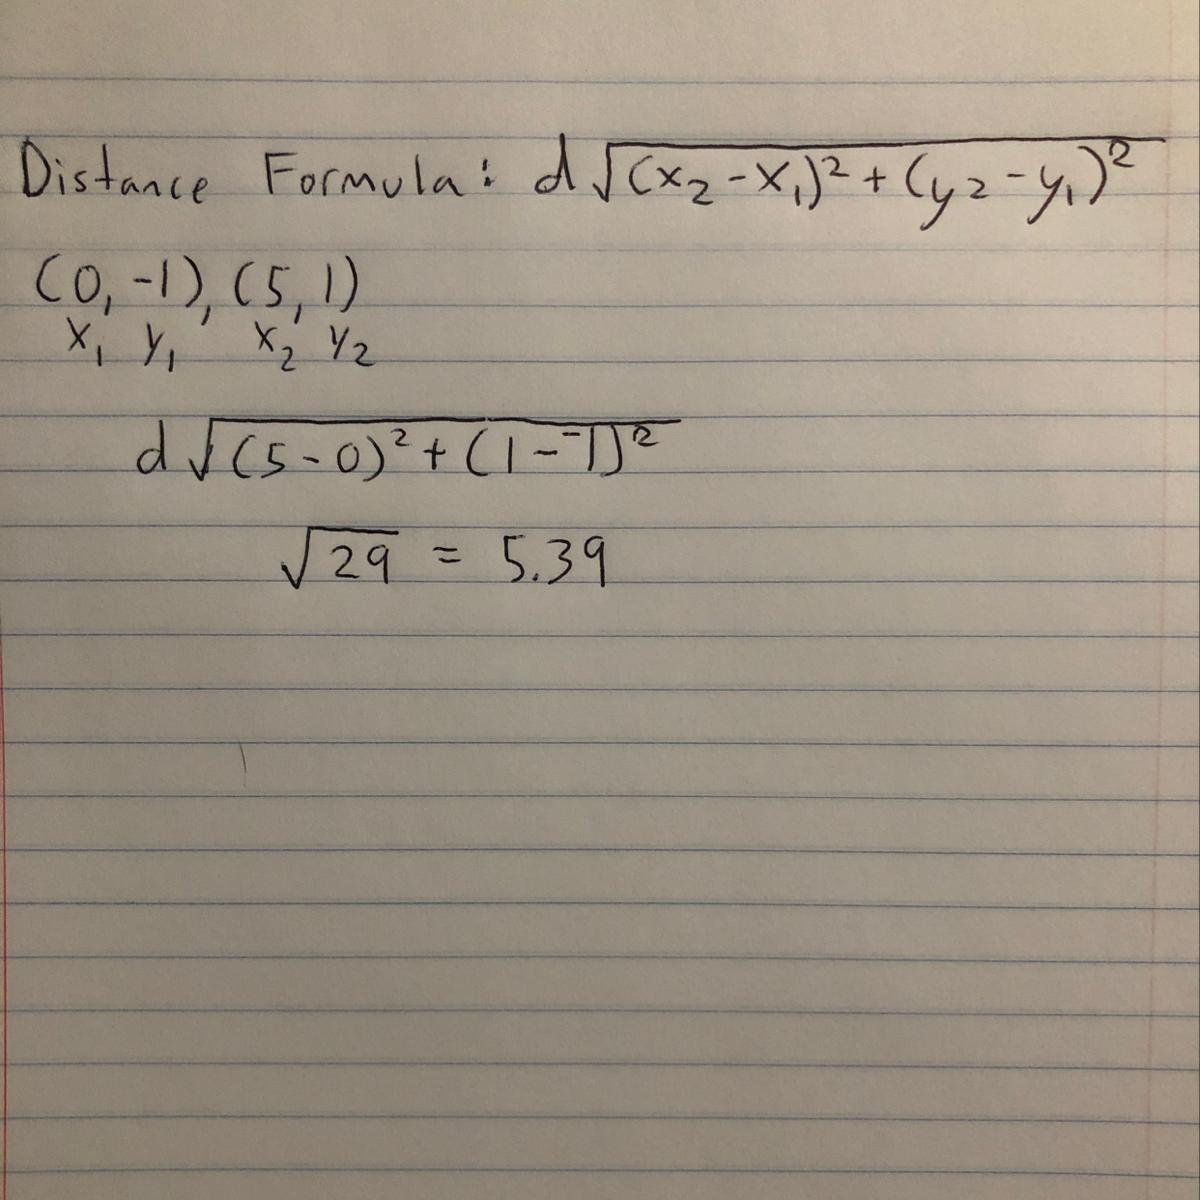 Distance Formula: d√(x₂-x₁)²+(y₂-y₁)²
(0,-1), (5,1)
x₁ y₁ x₂ y₂
d√(5-0)²+(1-⁻1)²
√29 = 5.39